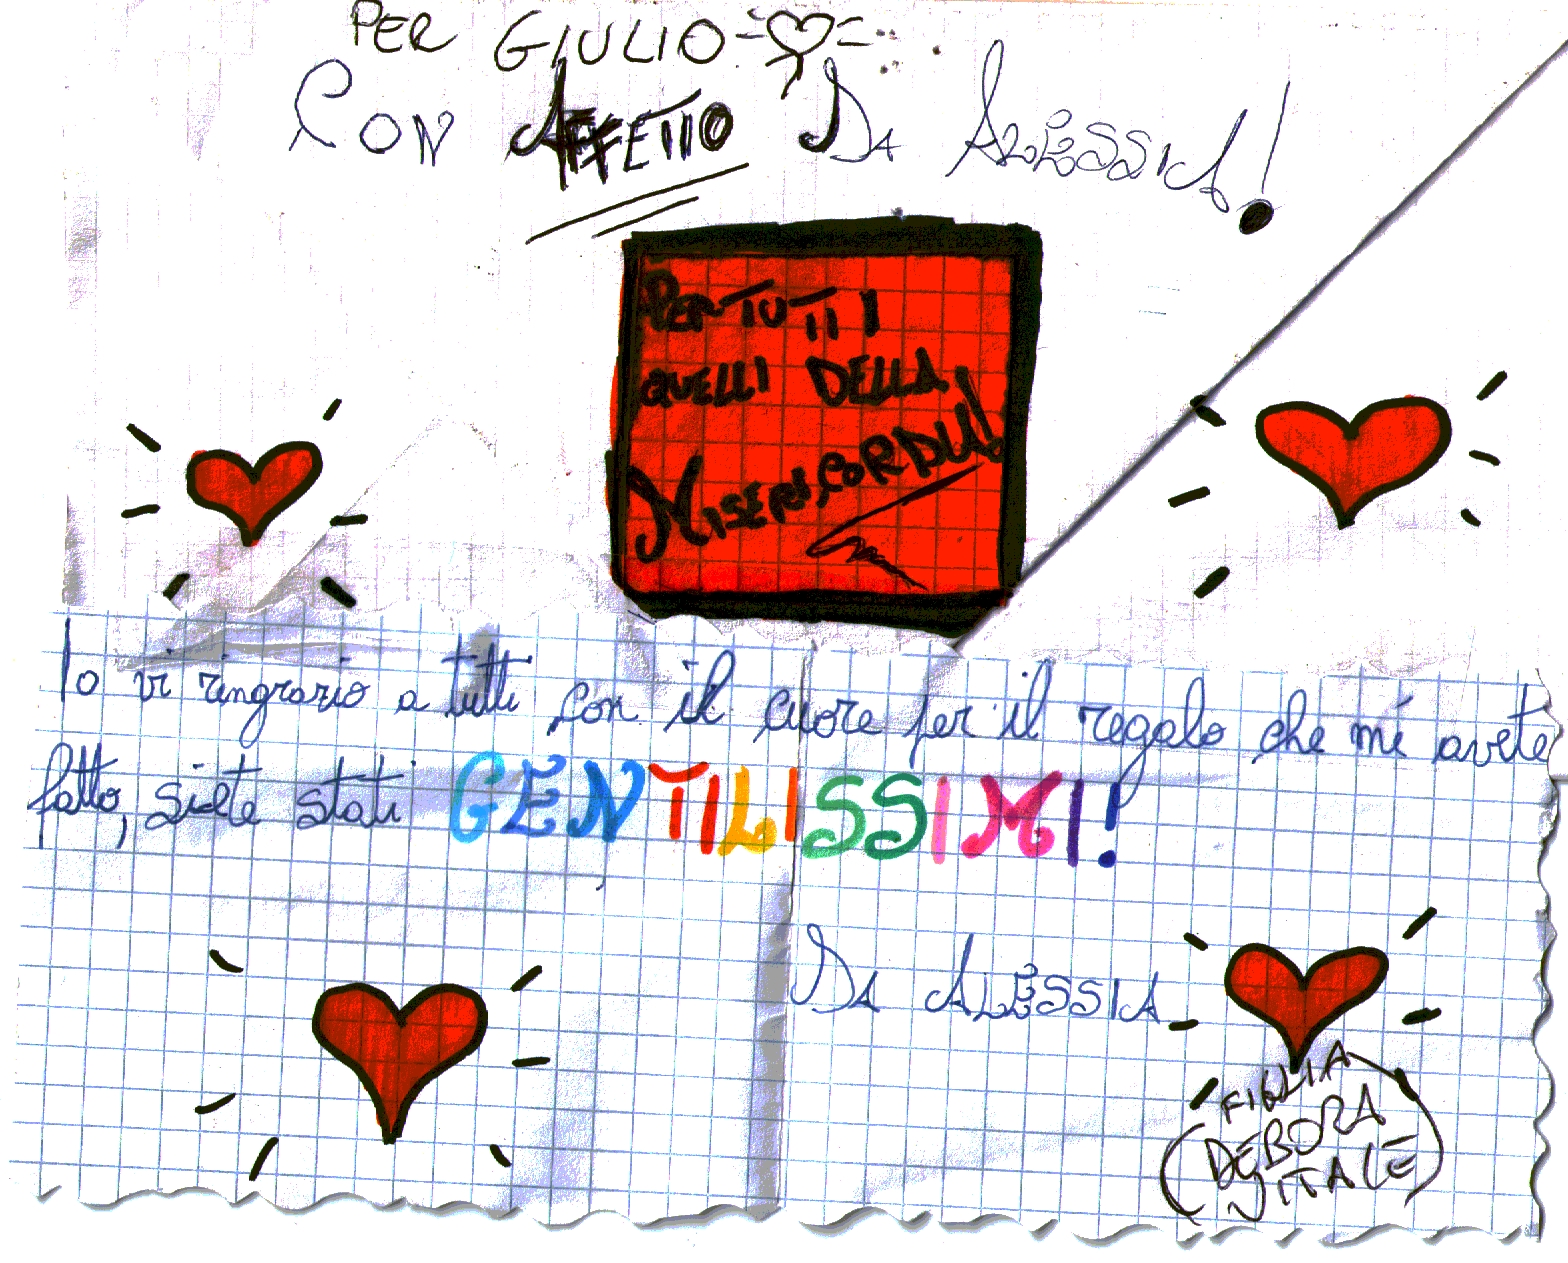 PER GIULIO
CON AFFETTO DA ALESSIA!
PER TUTTI
QUELLI DELLA
MISERICORDIA!
Io vi ringrazio a tutti con il cuore per il regalo che mi avete
fatto, siete stati GENTILISSIMI!
DA ALESSIA
(FIGLIA
DEBORA
VITALE)